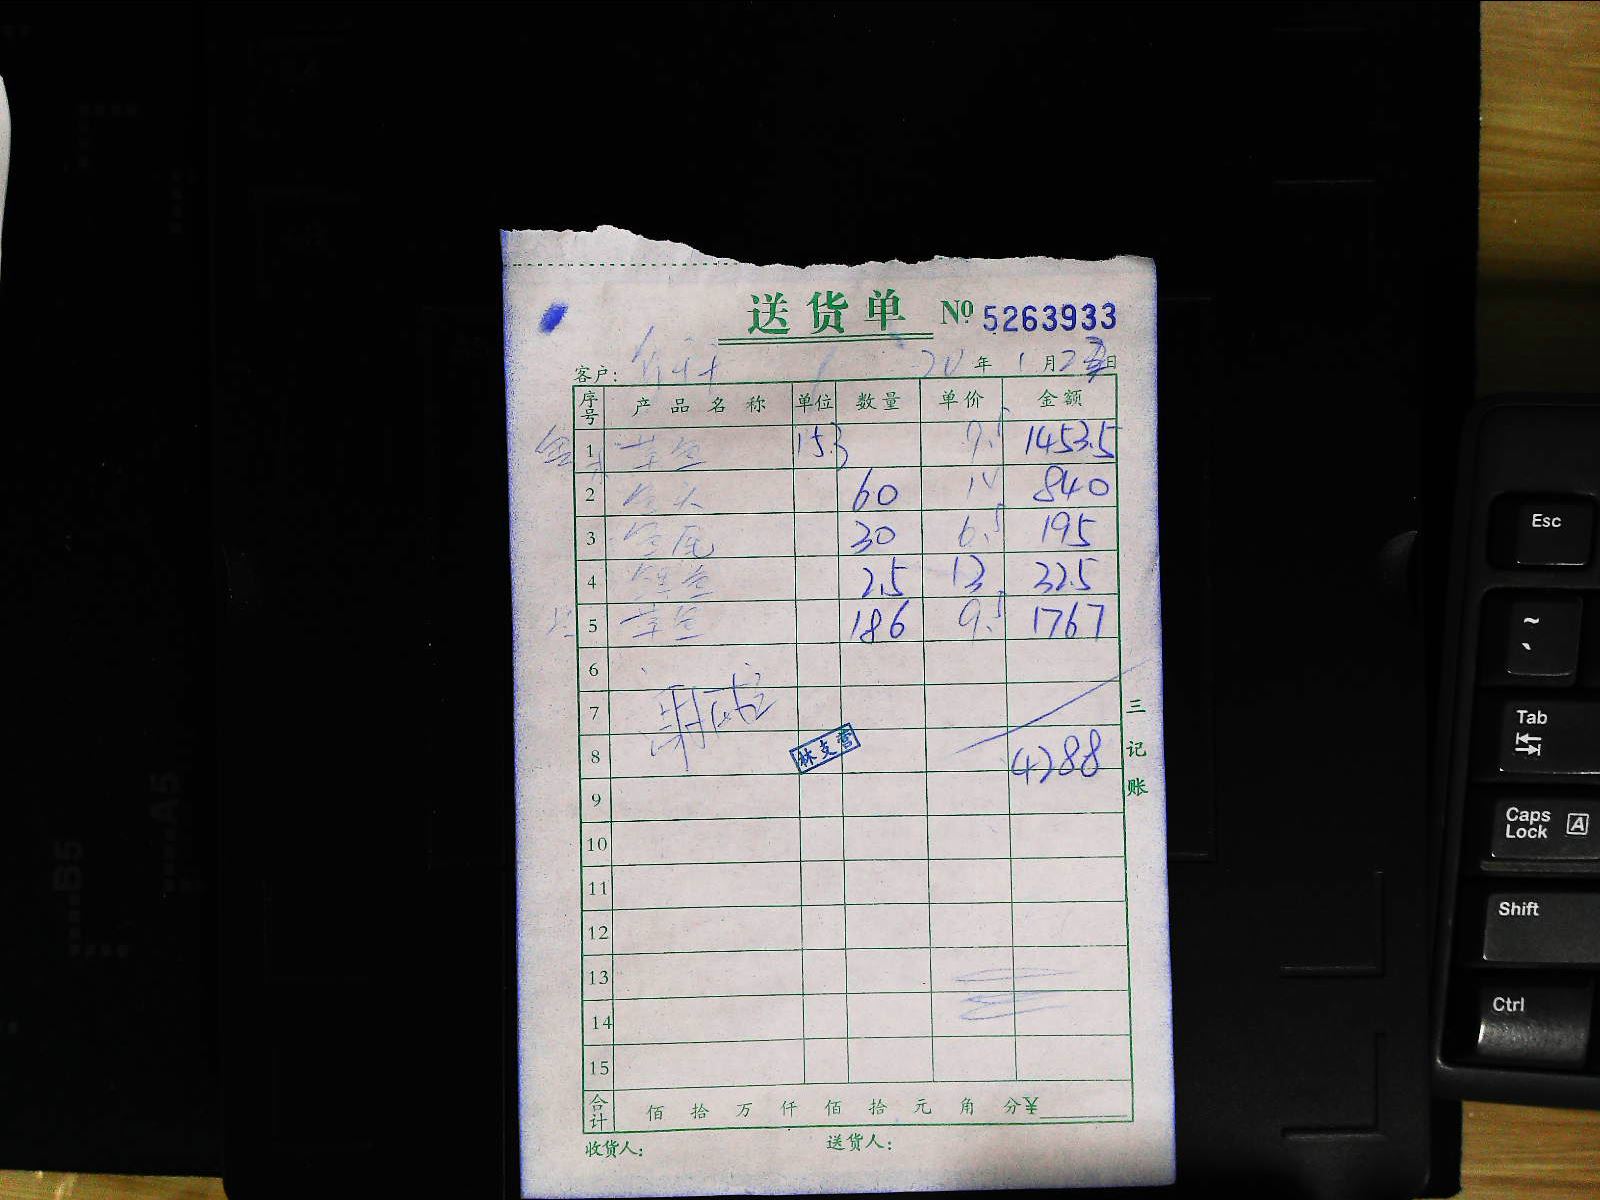 送货单 №5263933
客户: 20 年 1 月 2 日
序号 产品名称 单位 数量 单价 金额
1 草鱼 153 9.5 1453.5
2 鱼头 60 14 840
3 鱼尾 30 6.5 195
4 鱼 2.5 13 32.5
5 草鱼 186 9.5 1767
6
7
8 林支营 4288
9
10
11
12
13
14
15
合计 佰 拾 万 仟 佰 拾 元 角 分¥
收货人: 送货人:
三记账
B5
A5
Esc
~
`
Tab
Caps Lock A
Shift
Ctrl